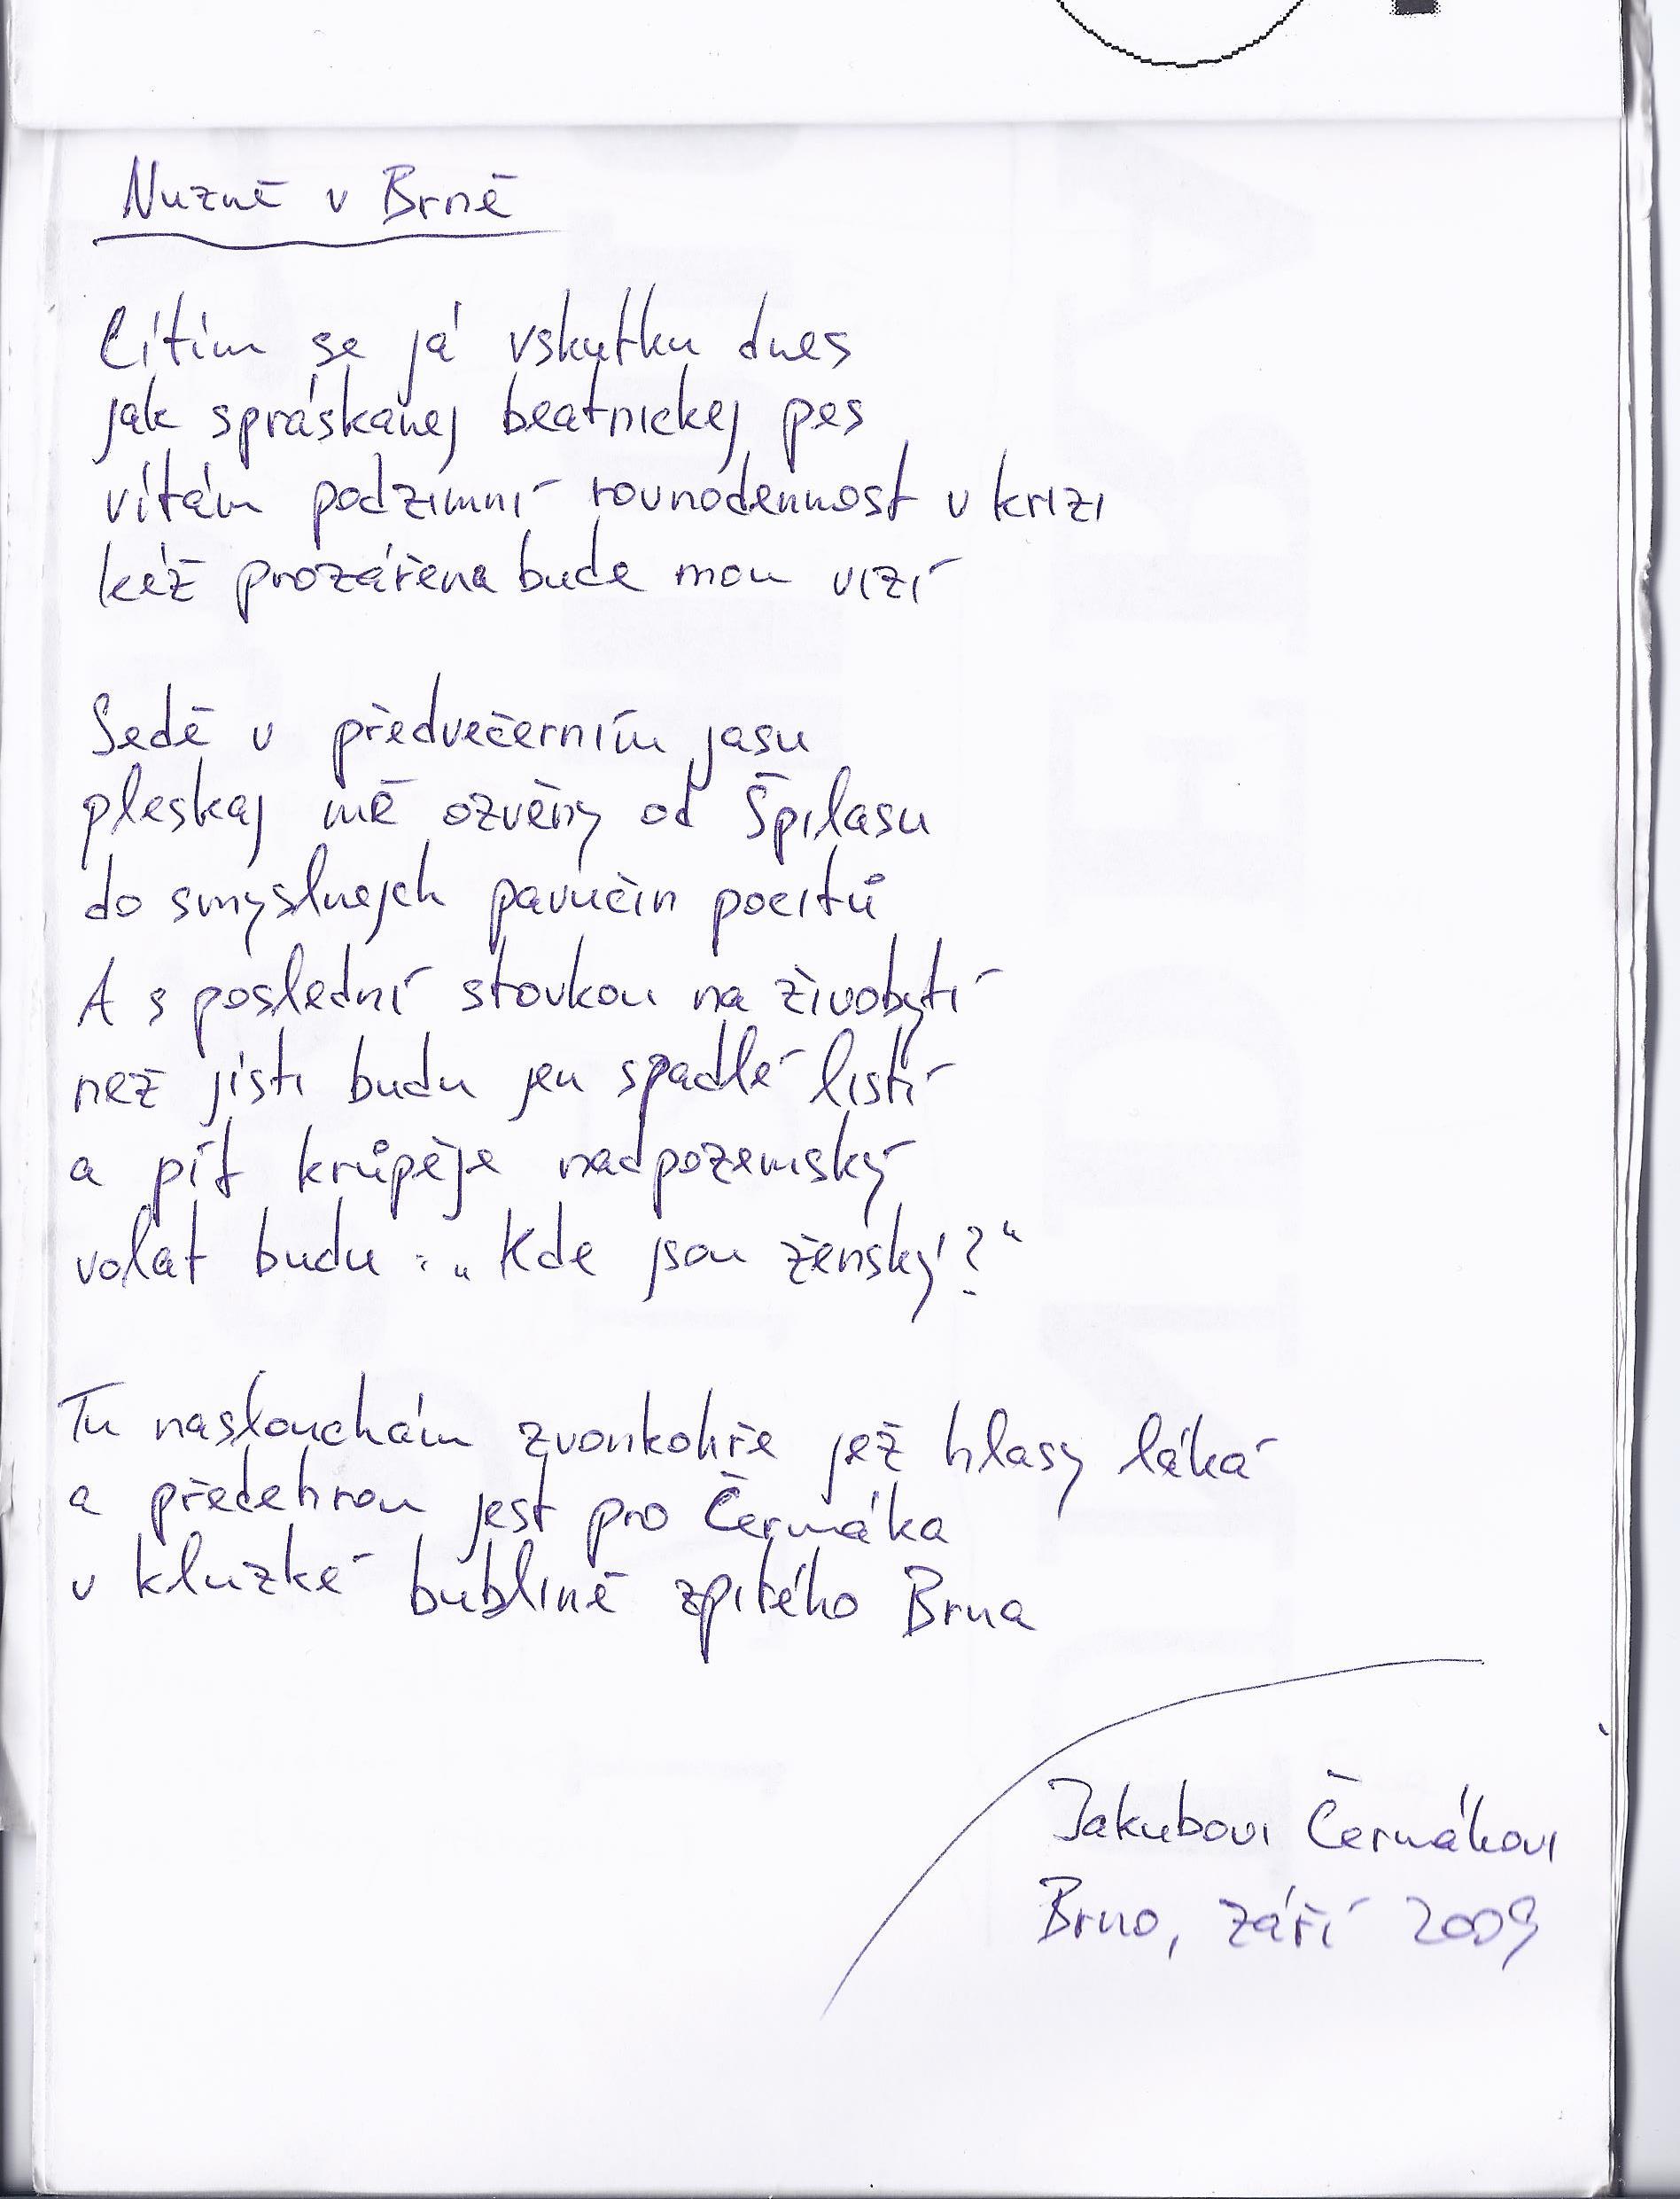 Nuzně v Brně
Cítím se já vskutku dnes
jak spráskanej beatnickej pes
vítám podzimní rovnodennost v krizi
kéž prozářena bude mou vizí
Sedě v předvečerním jasu
pleskaj mě ozvěny od Špilasu
do smyslnejch pavučin pocitů
A s poslední stovkou na živobytí
než jísti budu jen spadlé listí
a pít krůpěje nadpozemský
volat budu : „Kde jsou ženský?“
Tu naslouchám zvonkohře jež hlasy láká
a předehrou jest pro Čermáka
v kluzké bublině zpitého Brna
Jakubovi Čermákovi
Brno, září 2009